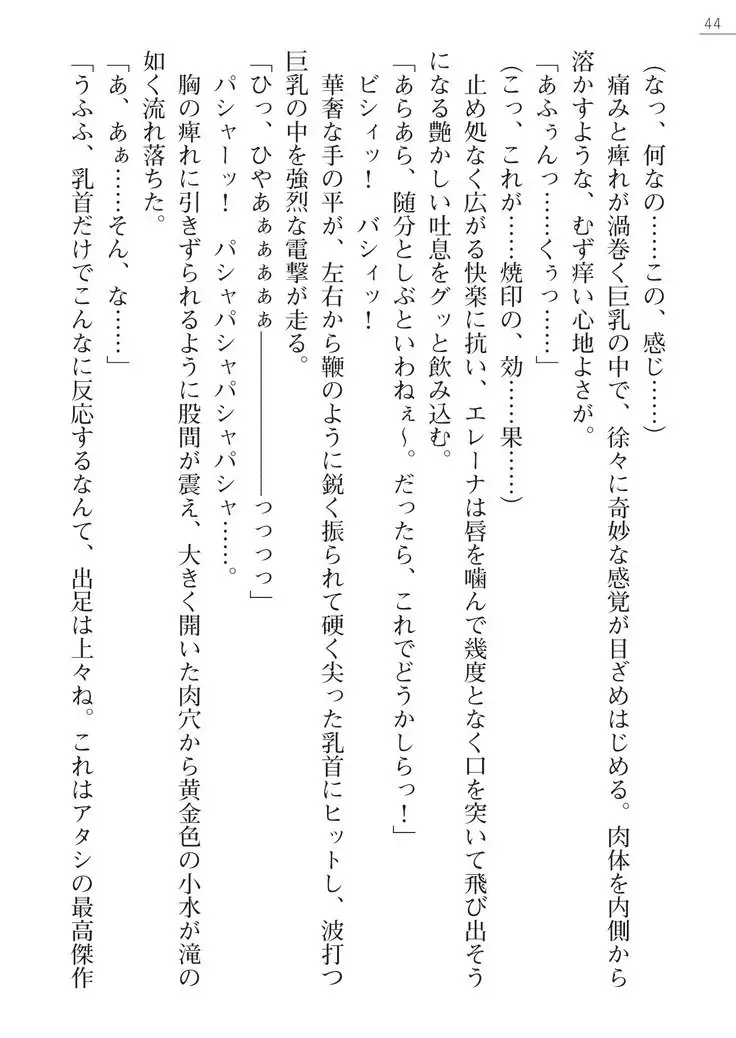 44
(なっ、何なの……この、感じ……)
痛みと痺れが渦巻く巨乳の中で、徐々に奇妙な感覚が目ざめはじめる。肉体を内側から
溶かすような、むず痒い心地よさが。
「あふぅんっ……くぅっ……」
(こっ、これが……焼印の、効……果……)
止め処なく広がる快楽に抗い、エレーナは唇を噛んで幾度となく口を突いて飛び出そう
になる艶かしい吐息をグッと飲み込む。
「あらあら、随分としぶといわねぇ～。だったら、これでどうかしらっ！」
ビシィッ！　バシィッ！
華奢な手の平が、左右から鞭のように鋭く振られて硬く尖った乳首にヒットし、波打つ
巨乳の中を強烈な電撃が走る。
「ひっ、ひやあぁぁぁぁぁ――――――っっっっ」
パシャーッ！　パシャパシャパシャパシャ……。
胸の痺れに引きずられるように股間が震え、大きく開いた肉穴から黄金色の小水が滝の
如く流れ落ちた。
「あ、あぁ……そん、な……」
「うふふ、乳首だけでこんなに反応するなんて、出足は上々ね。これはアタシの最高傑作